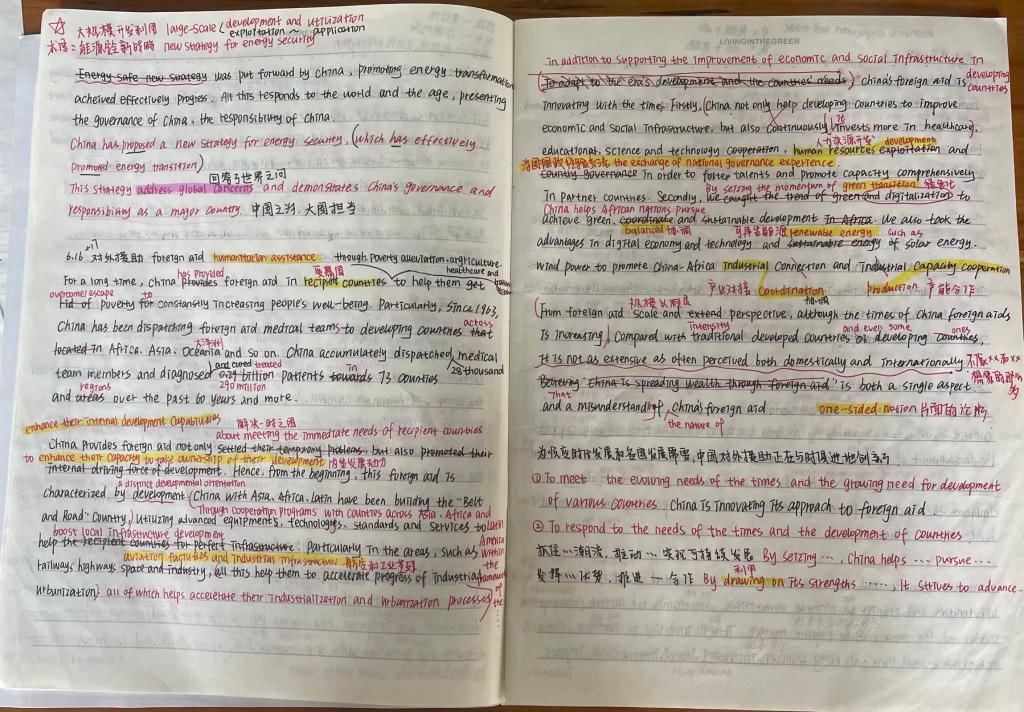 大规模开发利用 large-scale development and utilization
exploitation ~ application
能源 安全新战略 new strategy for energy security
Energy safe new strategy was put forward by China, promoting energy transformation
acheived effectively progress. All this responds to the world and the age, presenting
the governance of China, the responsibility of china.
China has proposed a new strategy for energy security, (which has effectively
promoted energy transition)
回答了世界之问
This strategy address global concerns and demonstrates China's governance and
responsibility as a major country. 中国之治, 大国担当
6.16 对外援助 foreign aid humanitarian assistance through poverty alleviation. agriculture.
healthcare and
has provided 受援国
For a long time, China provides foreign aid in recipient countries to help them get
overcome/escape to
rid of poverty for constantly increasing people's well-being. Particularly, since 1963,
China has been dispatching foreign aid medical teams to developing countries that across
大洋洲
located in Africa, Asia, Oceania and so on. China accumulately dispatched medical
and cured treated in 28 thousand
team members and diagnosed 0.29 billion patients towards 73 countries
regions 290 million
and areas over the past 60 years and more.
enhance their internal development capabilities 解决一时之困
about meeting the immediate needs of recipient countries
China provides foreign aid not only settled their temporary problems, but also promoted their
to enhance their capacity to take ownership of their development 内生发展动力
internal driving force of development. Hence, from the beginning, this foreign aid is
a distinct developmental orientation
characterized by development (China with Asia, Africa, Latin have been building the "Belt
Through cooperation programs with countries across Asia, Africa and
and Road" Country,) utilizing advanced equipments, technologies, standards and services to Latin
boost local infrastructure development America
help the recipient countries for perfect infrastructure. Particularly in the areas, such as within
aviation factures and industrial infrastructure 航空和工业基础 the framework
railways, highways, space and industry, all this help them to accelerate progress of industrial of the
urbanization) all of which helps accelerate their industrialization and urbanization processes
LIVINGINTHEGREEN
In addition to supporting the improvement of economic and social infrastructure in
developing
(To adapt to the era's development and the countries' needs,) china's foreign aid is countries
innovating with the times. Firstly, (China not only help developing countries to improve
it
economic and social infrastructure, but also continuously invests more in healthcare,
人力资源开发 development
educational, science and technology cooperation, human resources exploitation and
治国理政经验交流 the exchange of national governance experience.
country governance in order to foster talents and promote capacity comprehensively
By seizing the momentum of green transition
in partner countries. Secondly, we caught the trend of green and digitalization to
China helps African nations pursue
achieve green, coordinate and sustainable development in Africa. We also took the
balanced 协调 可再生能源 renewable energy such as
advantages in digital economy and technology and sustainable energy of solar energy.
wind power to promote China-Africa industrial connection and industrial capacity cooperation
产业对接 coordination production 产能合作
规模 协调
From foreign aid scale and extend perspective, although the times of China foreign aids
intensity and even some
is increasing, compared with traditional developed countries or developing countries, ones
it is not as extensive as often perceived both domestically and internationally
Believing "China is spreading wealth through foreign aid" is both a single aspect
that
and a misunderstanding of China's foreign aid one-sided notion 片面的
the nature of
为 适应时代发展和各国发展需要, 中国对外援助正在与时俱进地创新
① To meet the evolving needs of the times and the growing need for development
of various countries China is innovating its approach to foreign aid.
② To respond to the needs of the times and the development of countries
抓住…潮流, 推动… 实现可持续发展 By seizing ..., China helps ... pursue ...
利用
发挥…优势, 推进… 合作 By drawing on its strengths ......, it strives to advance...